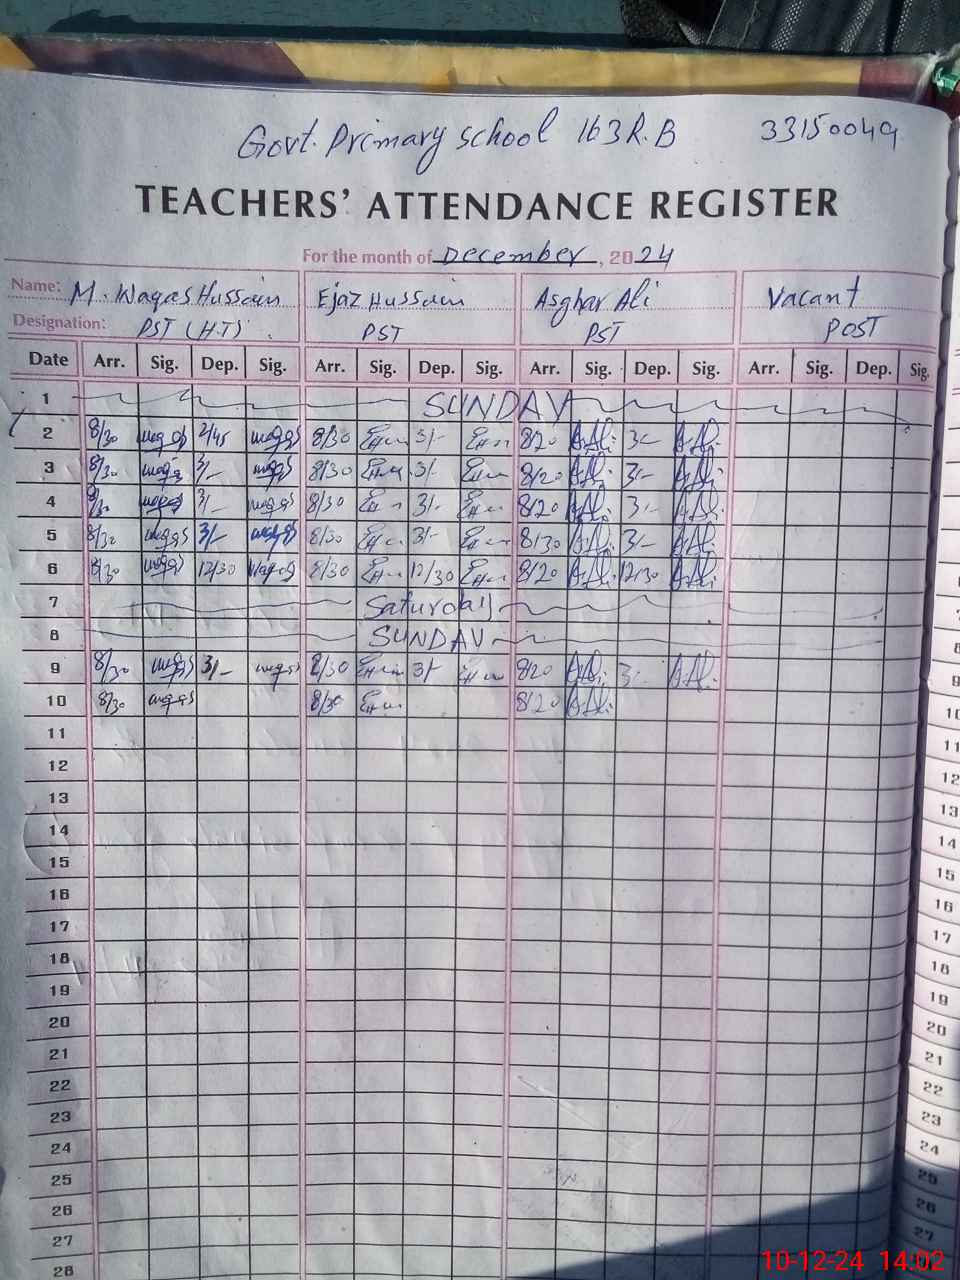 Govt. Primary School 163 R.B 33150049
TEACHERS' ATTENDANCE REGISTER
For the month of December, 2024
Name: M. Waqas Hussain Ejaz Hussain Asghar Ali Vacant
Designation: PST (H.T) PST PST POST
Date Arr. Sig. Dep. Sig. Arr. Sig. Dep. Sig. Arr. Sig. Dep. Sig. Arr. Sig. Dep. Sig.
1 SUNDAY
2 8/30 waqas 2/45 waqas 8/30 3/- 8/20 A.Ali 3/- A.Ali
3 8/30 waqas 3/- waqas 8/30 3/- 8/20 A.Ali 3/- A.Ali
4 8/30 waqas 3/- waqas 8/30 3/- 8/20 A.Ali 3/- A.Ali
5 8/30 waqas 3/- waqas 8/30 3/- 8/30 A.Ali 3/- A.Ali
6 8/30 waqas 12/30 waqas 8/30 12/30 8/20 A.Ali 12/30 A.Ali
7 Saturday
8 SUNDAY
9 8/30 waqas 3/- waqas 8/30 3/- 8/20 A.Ali 3/- A.Ali
10 8/30 waqas 8/30 8/20 A.Ali
11
12
13
14
15
16
17
18
19
20
21
22
23
24
25
26
27
28
10-12-24 14:02